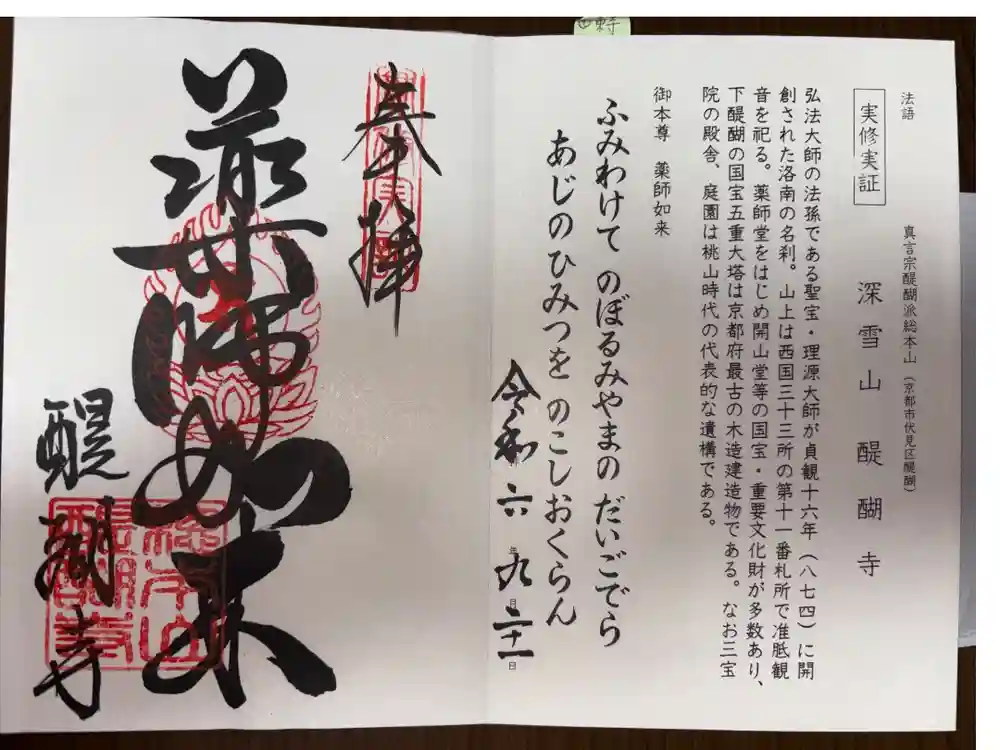 法語
真言宗醍醐派総本山（京都市伏見区醍醐）
実修実証
深雪山 醍醐寺
弘法大師の法孫である聖宝・理源大師が貞観十六年（八七四）に開
創された洛南の名刹。山上は西国三十三所の第十一番札所で准胝観
音を祀る。薬師堂をはじめ開山堂等の国宝・重要文化財が多数あり、
下醍醐の国宝五重大塔は京都府最古の木造建造物である。なお三宝
院の殿舎、庭園は桃山時代の代表的な遺構である。
御本尊 薬師如来
ふみわけて のぼるみやまの だいごでら
あじのひみつを のこしおくらん
令和六年九月二十一日
奉拝
薬師如来
醍醐寺
総本山
醍醐寺